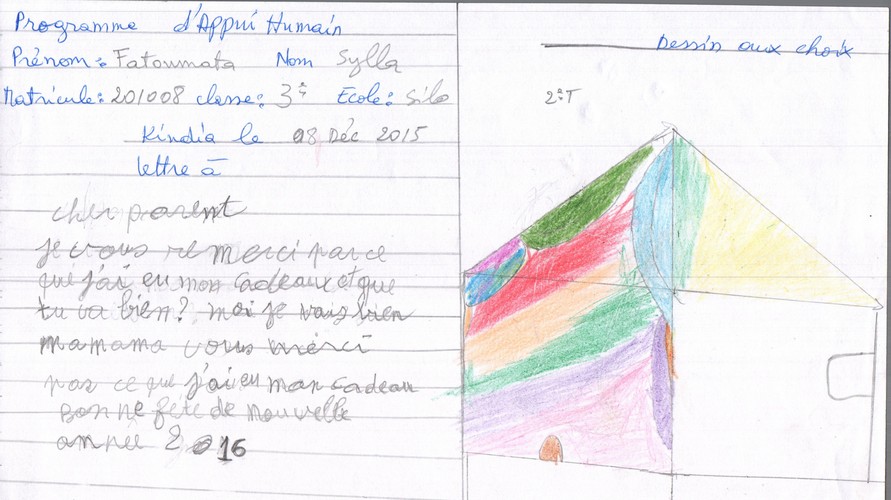 Programme d'Appui Humain
Prénom: Fatoumata Nom Sylla
Matricule: 201008 classe: 3e Ecole: Silo
Kindia le 08 Déc 2015
lettre à
cher parent
je vous remerci parce
que j'ai eu mon cadeaux et que
tu va bien? moi je vais bien
mamama vous mérci
par ce que j'ai eu mon cadeau
Bonne fête de nouvelle
année 2016
Dessin aux choix
2e T